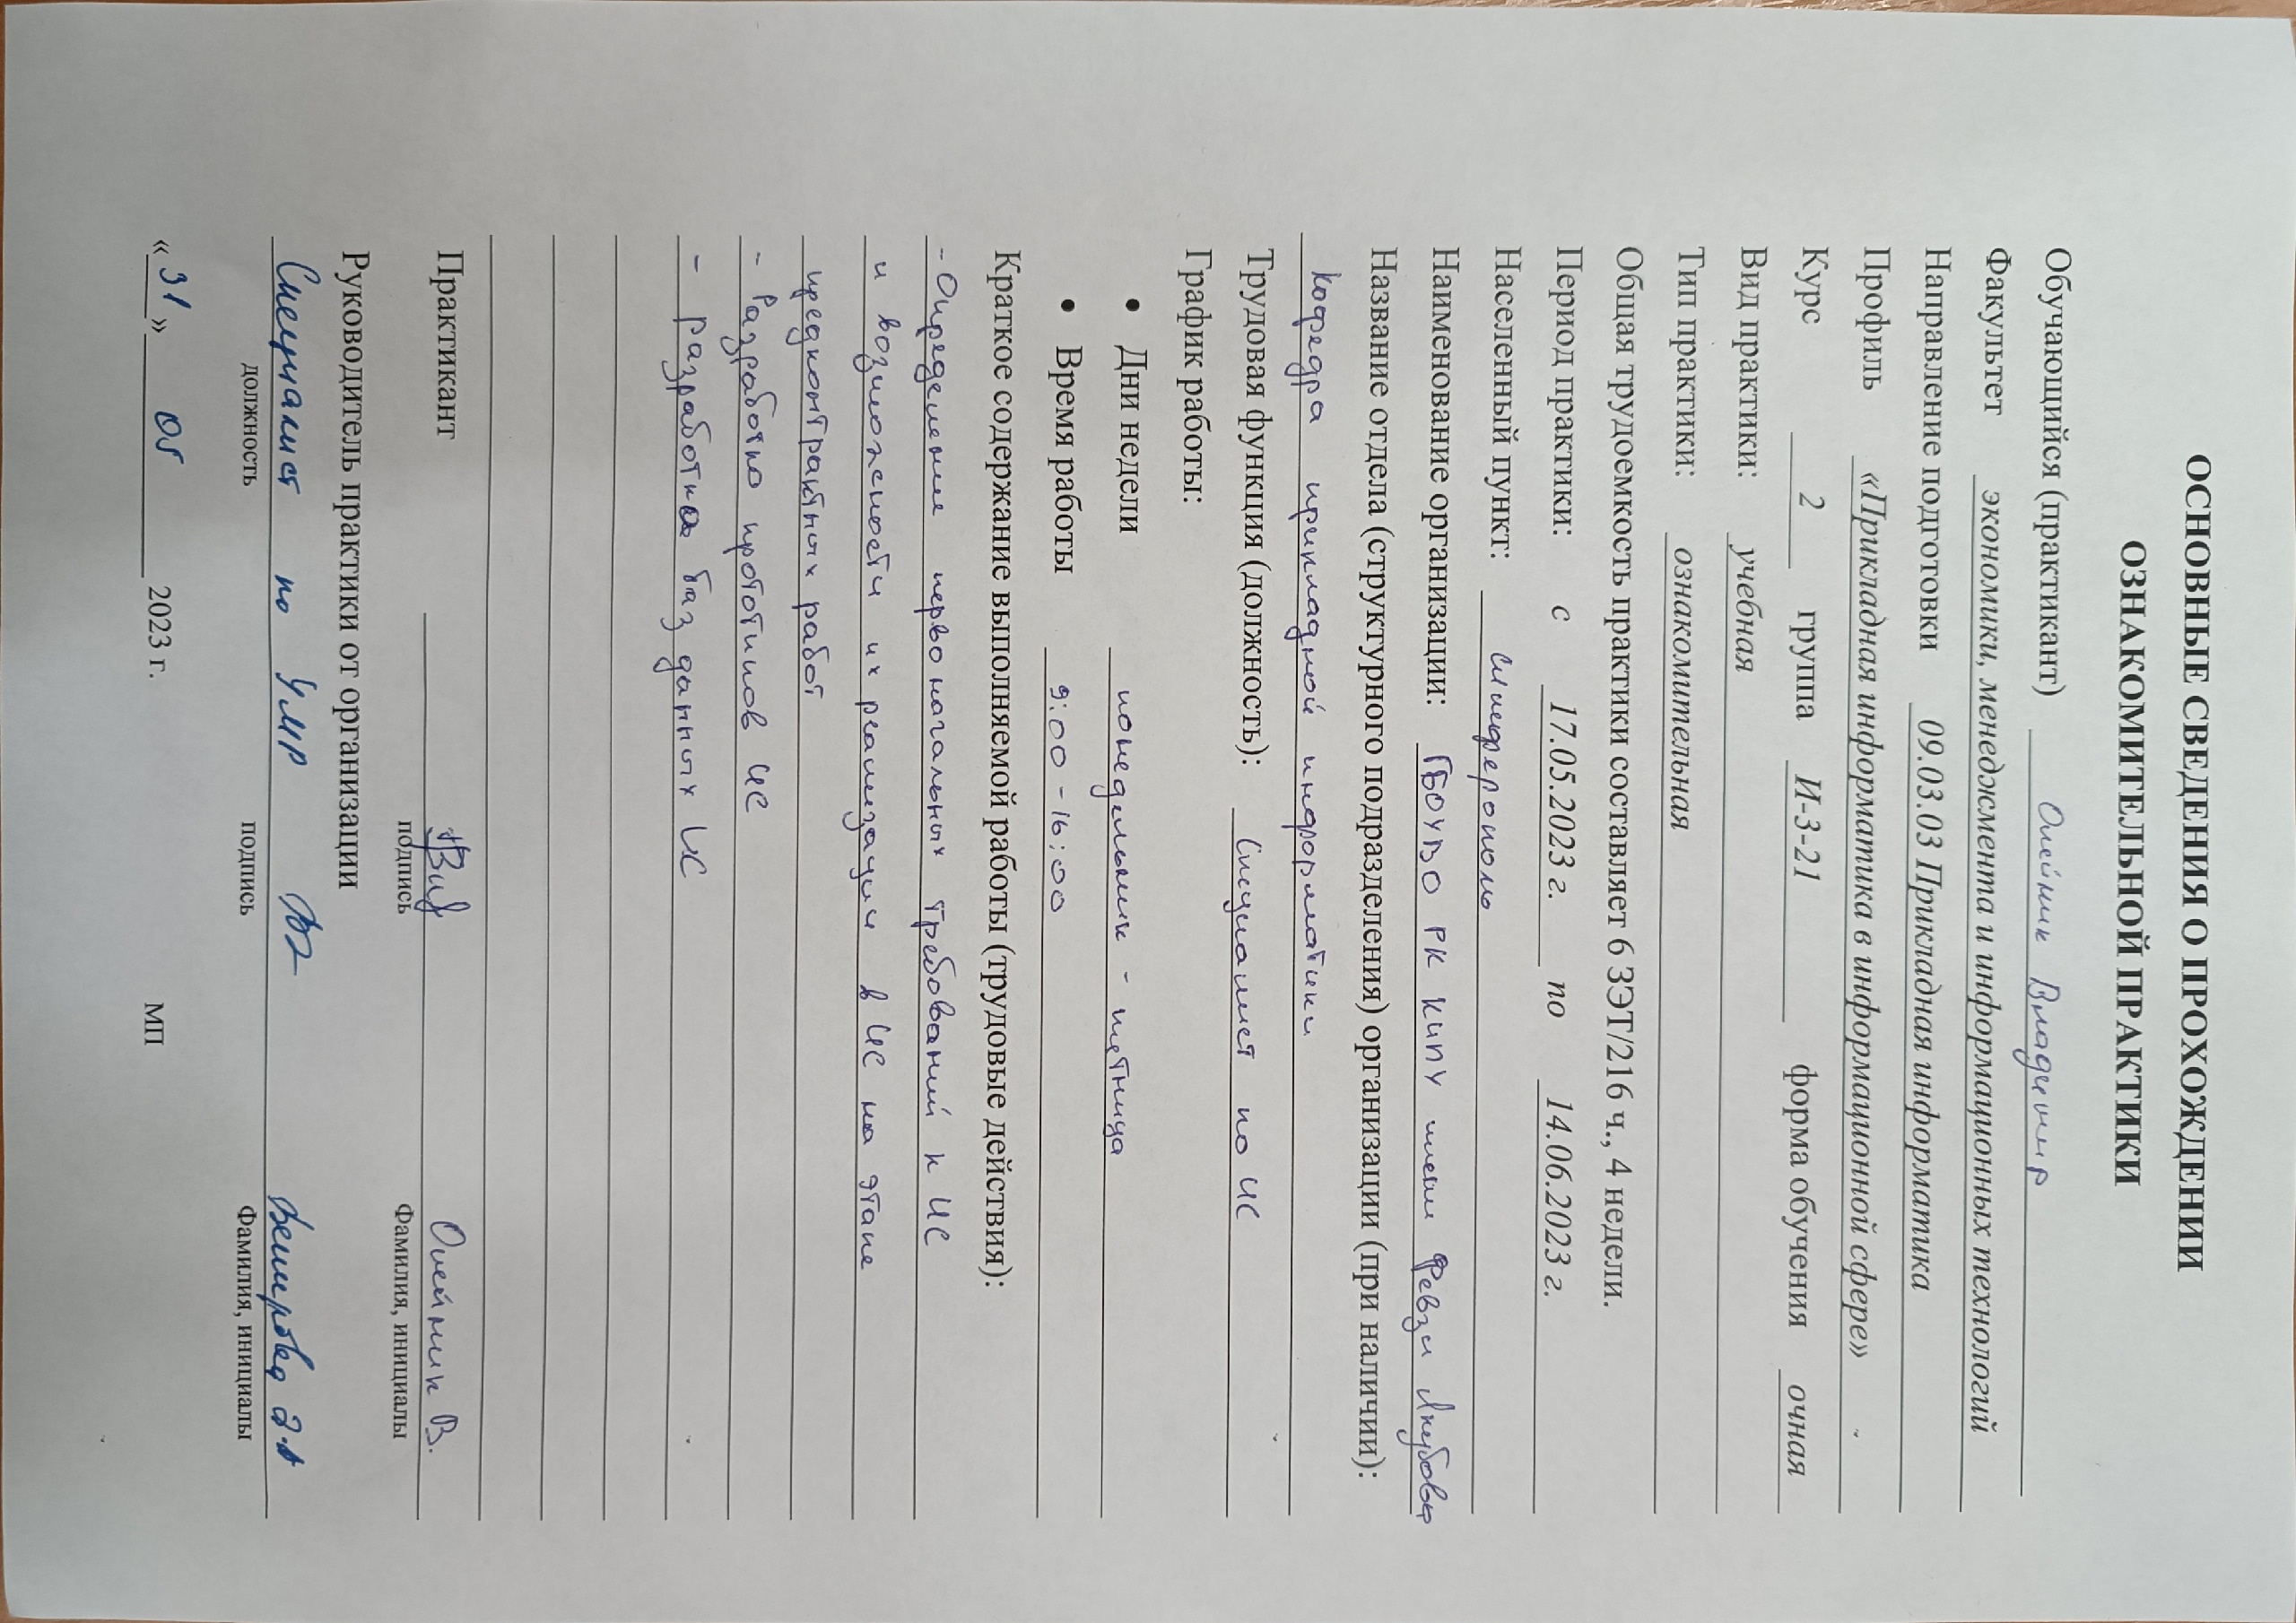 ОСНОВНЫЕ СВЕДЕНИЯ О ПРОХОЖДЕНИИ
ОЗНАКОМИТЕЛЬНОЙ ПРАКТИКИ
Обучающийся (практикант) Олейник Владимир
Факультет экономики, менеджмента и информационных технологий
Направление подготовки 09.03.03 Прикладная информатика
Профиль «Прикладная информатика в информационной сфере»
Курс 2 группа И-3-21 форма обучения очная
Вид практики: учебная
Тип практики: ознакомительная
Общая трудоемкость практики составляет 6 ЗЭТ/216 ч., 4 недели.
Период практики: с 17.05.2023 г. по 14.06.2023 г.
Населенный пункт: Симферополь
Наименование организации: ГБОУВО РК КИПУ имени Февзи Якубова
Название отдела (структурного подразделения) организации (при наличии):
Кафедра прикладной информатики
Трудовая функция (должность): Специалист по ИС
График работы:
• Дни недели понедельник - пятница
• Время работы 9:00 - 16:00
Краткое содержание выполняемой работы (трудовые действия):
- Определение первоначальных требований к ИС
и возможности их реализации в ИС на этапе
предконтрактных работ
- Разработка прототипов ИС
- разработка баз данных ИС
Практикант Олейник В.
подпись Фамилия, инициалы
Руководитель практики от организации
Специалист по УМР
должность подпись Фамилия, инициалы
«31» 05 2023 г. МП